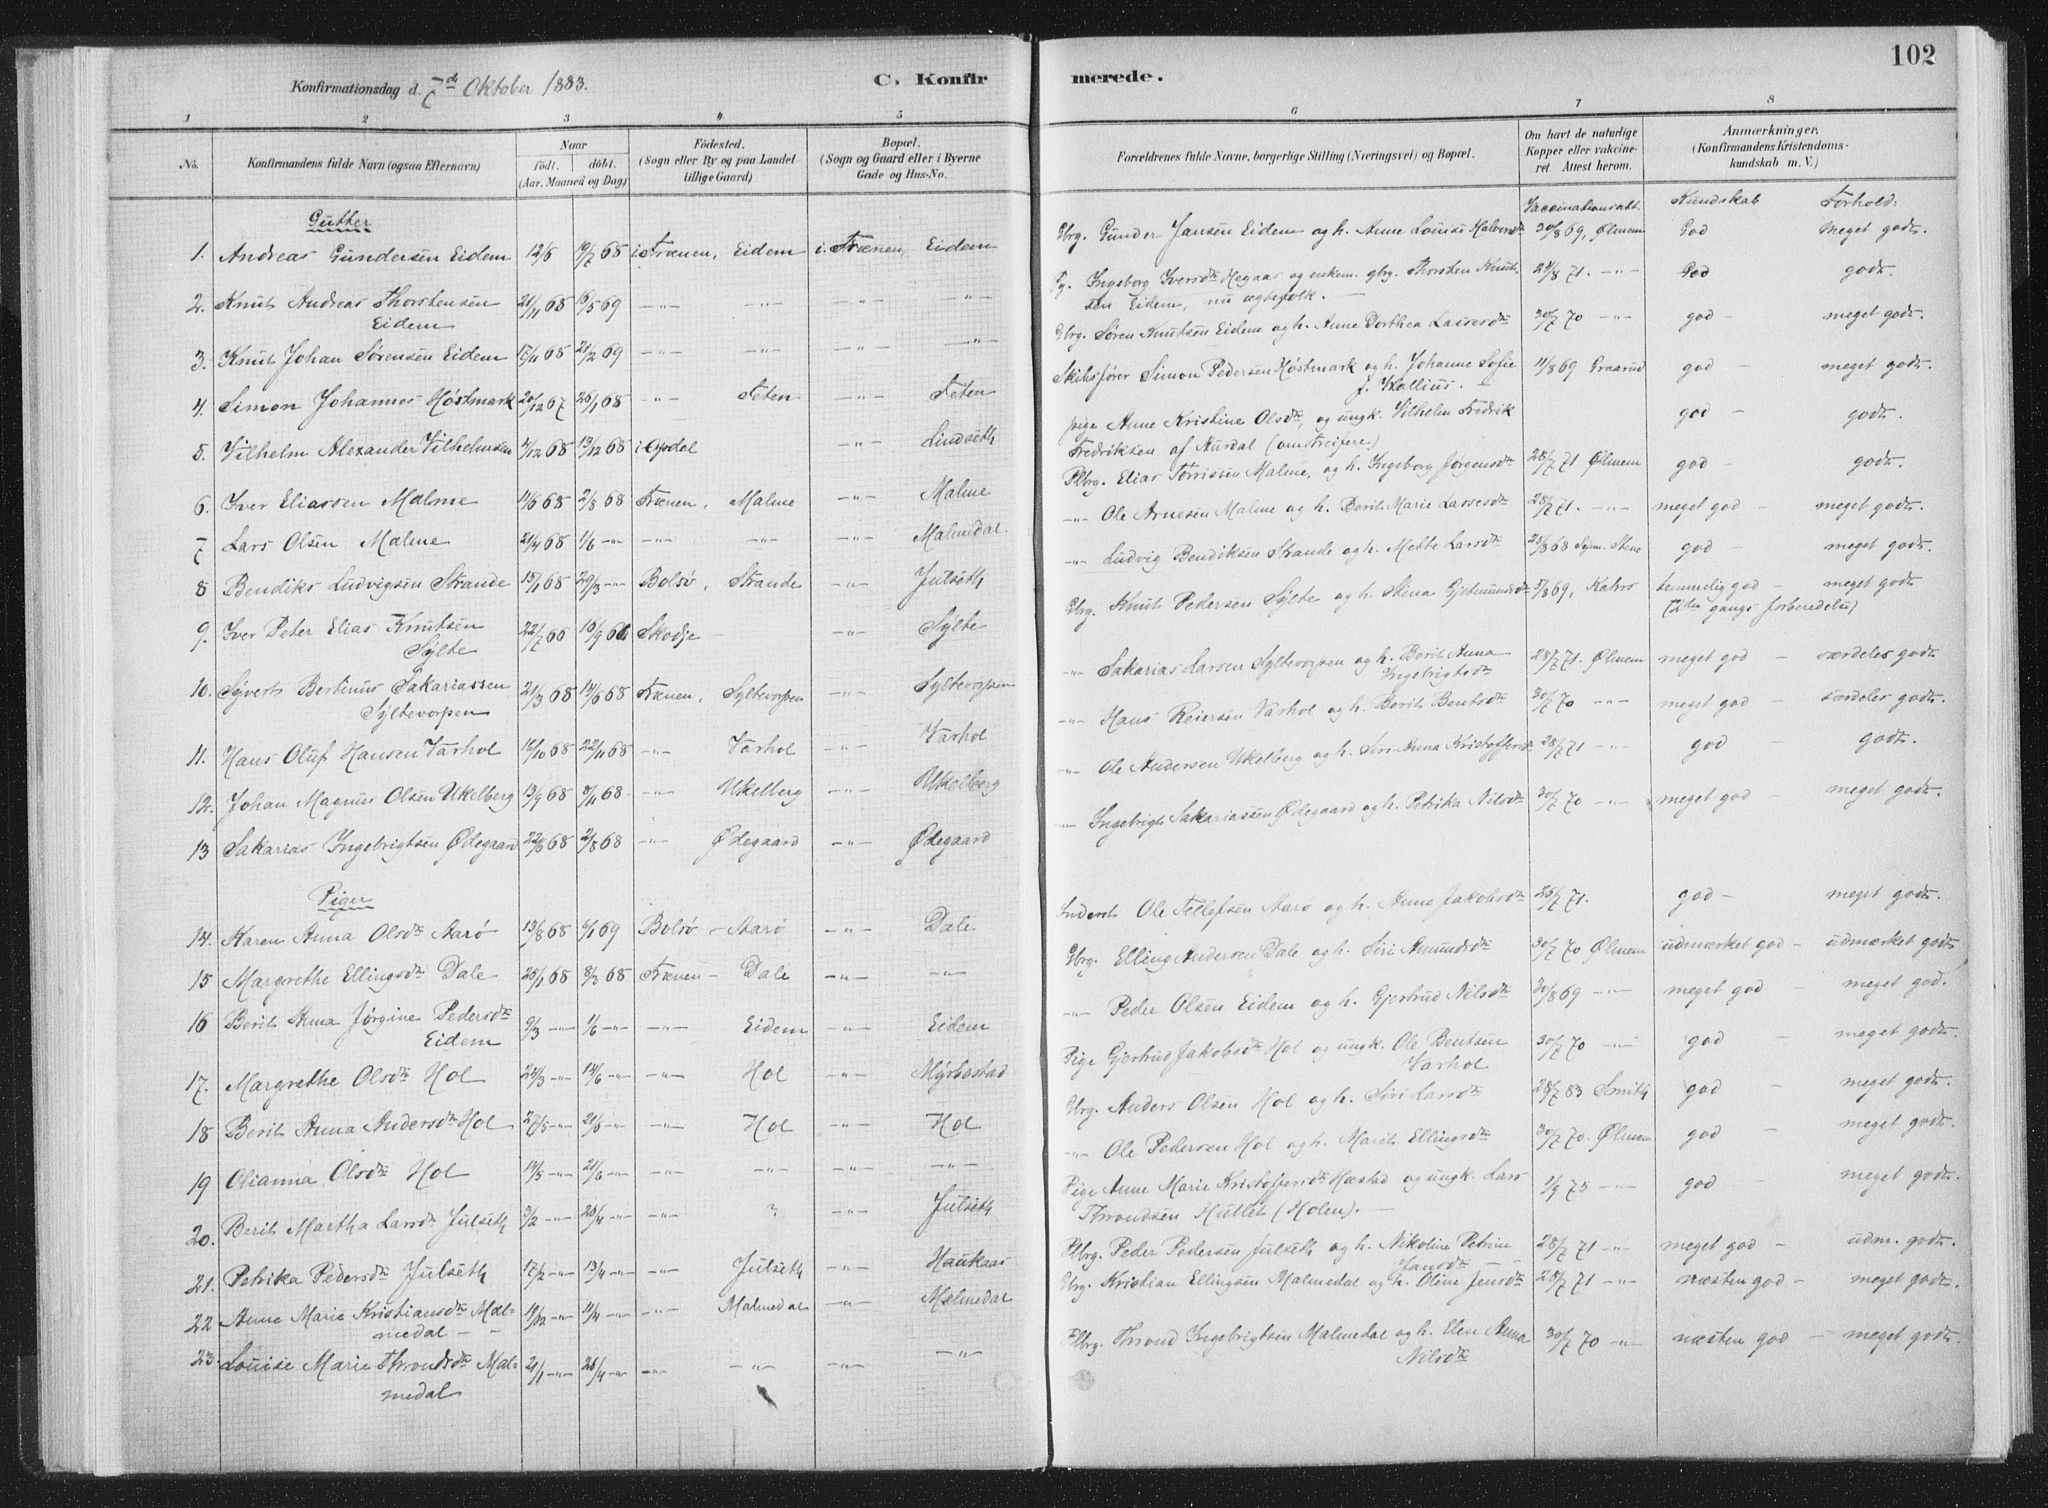 102
Konfirmationsdag d. 7de Oktober 1883.
C. Konfirmerede.
1 2 3 4 5 6 7 8
No.
Konfirmandens fulde Navn (ogsaa Efternavn)
Naar
født. døbt.
(Aar, Maaned og Dag)
Fødested.
(Sogn eller By og paa Landet
tillige Gaard)
Bopæl.
(Sogn og Gaard eller i Byerne
Gade og Hus-No.
Forældrenes fulde Navne, borgerlige Stilling (Næringsvei) og Bopæl.
Om havt de naturlige
Kopper eller vakcine-
ret Attest herom.
Anmærkninger.
(Konfirmandens Kristendoms-
kundskab m. V.)
Vaccinationsatt. Kundskab Forhold:
Gutter
1. Andreas Gundersen Eidem 12/6 19/7 68 i Frænen, Eidem i Frænen, Eidem Gbrg. Gunder Jansen Eidem og h. Anne Louise Halversdtr 30/8 69, Ølmem God Meget godt.
2. Knut Andreas Thorstensen 21/11 68 16/5 69 -"- -"- -"- " Pg. Ingeborg Iversdtr Hegaas og enkem. gbrg. Thorsten Knut- 24/8 71. -"- God godt.
Eidem sen Eidem, nu ægtefolk. -
3. Knut Johan Sørensen Eidem 17/11 68 21/2 69 -"- -"- -"- -"- Gbrg. Søren Knutsen Eidem og h. Anne Dorthea Lassesdtr 30/7 70 -"- god - meget godt.
4. Simon Johannes Høstmark 20/12 67 26/1 68 -"- Teten -"- Teten Skibsfører Simon Pedersen Høstmark og h. Johanne Sofie 11/8 69 Graarud god - meget godt.
f. Kallius.
5. Vilhelm Alexander Vilhelmsen 4/12 68 13/12 68 i Opdal -"- Lindseth pige Anne Kristine Olsdtr, og ungk. Vilhelm Fredrik god - godt.
Fredriksen af Aurdal (omstreifere)
6. Iver Eliassen Malme 11/6 68 2/8 68 Frænen, Malme -"- Malme Plbrg. Elias Torrissen Malme, og h. Ingeborg Jørgensdtr 28/7 71 Ølmem god - godt.
7 Lars Olsen Malme 21/4 68 1/6 -"- -"- -"- -"- Malmedal. -"- Ole Arnesen Malme og h. Berit Marie Lassesdtr 28/7 71. -"- meget god - meget godt.
8 Bendiks Ludvigsen Strande 15/1 68 29/3 -"- Bolsø, Strande -"- Julseth -"- Ludvig Bendiksen Strande og h. Mette Larsdtr 23/8 68 Stene god - meget godt.
9. Iver Peter Elias Knutsen 22/7 66 16/9 66 Skodje - -"- Sylte Gbrg. Knut Pedersen Sylte og h. Stina Gjetmundsdtr 5/8 69, temmelig god - meget godt
Sylte gangs forberedelse)
10. Syvert Bertinus Sakariassen 21/3 68 14/6 68 Frænen, Syltevorpen -"- Syltevorpen -"- Sakarias Larsen Syltevorpen og h. Berit Anna 28/7 71. Ølmem meget god - særdeles godt.
Syltevorpen Ingebrigtsdtr
11. Hans Oluf Hansen Varhol 16/10 68 22/11 68 -"- Varhol -"- Varhol -"- Hans Reiersen Varhol og h. Berit Bentsdtr 30/7 70 -"- meget god - særdeles godt.
12. Johan Magnus Olsen Ukelberg 13/9 68 8/11 68 -"- Ukelberg -"- Ukelberg -"- Ole Andersen Ukelberg og h. Siri Anna Kristoffersdtr 28/7 71 -"- god - godt.
13 Sakarias Ingebrigtsen Ødegaard 22/6 68 2/8 68 -"- Ødegaard -"- Ødegaard -"- Ingebrigt Sakariassen Ødegaard og h. Petrika Nilsdtr 30/7 70 -"- meget god - meget godt.
Piger
14. Karen Anna Olsdtr Aarø 13/8 68 6/1 69 Bolsø - Aarø -"- Dale Inderst Ole Tellefsen Aarø og h. Anne Jakobsdtr 25/7 71. god - meget godt.
15 Margrethe Ellingsdtr Dale 25/1 68 8/3 68 Frænen - Dale -"- -"- Gbrg. Elling Andersen Dale og h. Siri Amundsdtr 30/7 70 Ølmem udmærket god - udmærket godt
16 Berit Anna Jørgine Pedersdtr 9/3 -"- 1/6 -"- -"- Eidem -"- Eidem -"- Peder Olsen Eidem og h. Gjertrud Nilsdtr 30/8 69 -"- meget god - meget god.
Eidem
17. Margrethe Olsdtr Hol 24/3 -"- 14/6 -"- -"- Hol -"- Myrbostad Pige Gjertrud Jakobsdtr Hol og ungk. Ole Bentsen 30/7 70 -"- god - meget godt.
Varhol
18 Berit Anna Andersdtr Hol 27/5 -"- 21/6 -"- -"- Hol -"- Hol Gbrg. Anders Olsen Hol og h. Siri Larsdtr 28/7 83 Smith god - meget godt.
19 Olianna Olsdtr Hol 14/5 -"- 21/6 -"- -"- -"- -"- -"- -"- Ole Pedersen Hol og h. Marit Ellingsdtr 30/7 70. Ølmem god - meget godt.
20. Berit Martha Larsdtr Julseth 3/2 -"- 26/4 -"- -"- ? -"- Julseth Pige Anne Marie Kristoffersdtr Hæstad og ungk. Lars 1/9 75 -"- god - meget godt.
Throndsen Hullet (Holen). -
21. Petrika Pedersdtr Julseth 17/2 -"- 13/4 -"- -"- Julseth -"- Haukaas Plbrg. Peder Pedersen Julseth og h. Nikoline Petrine 28/7 71 -"- meget god - udm. godt.
Jansdtr
22 Anne Marie Kristiansdtr Mal- 19/12 -"- 11/4 -"- -"- Malmedal -"- Malmedal Gbrg. Kristian Ellingsen Malmedal og h. Oline Jensdtr 28/7 71 -"- næsten god - meget godt.
medal - -
23. Louise Marie Throndsdtr Mal- 21/1 -"- 26/4 -"- -"- -"- -"- -"- Plbrg. Thrond Ingebrigtsen Malmedal og h. Elen Anna 30/7 70 -"- næsten god - meget godt.
medal Nilsdtr